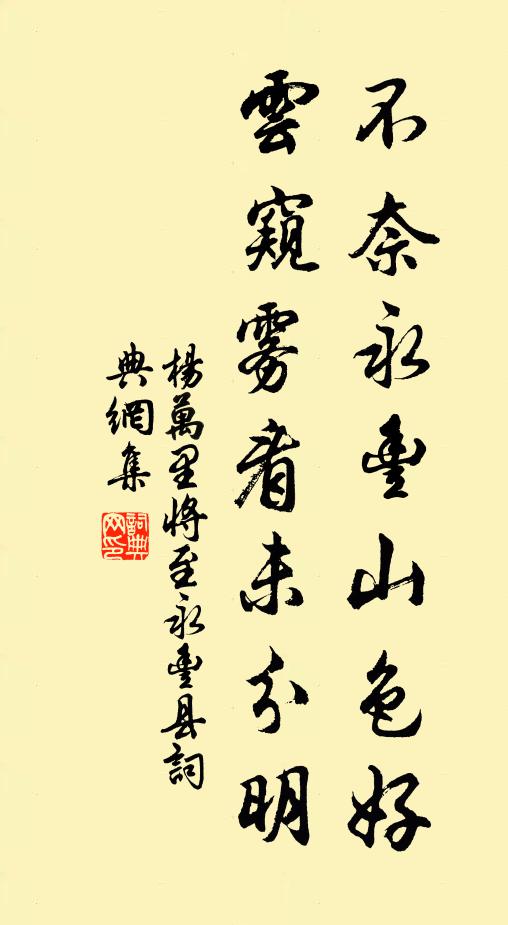 不奈永豐山色好
雲窺雾看未分明
楊萬里將至永豐县詞
典網集
詞典
网印